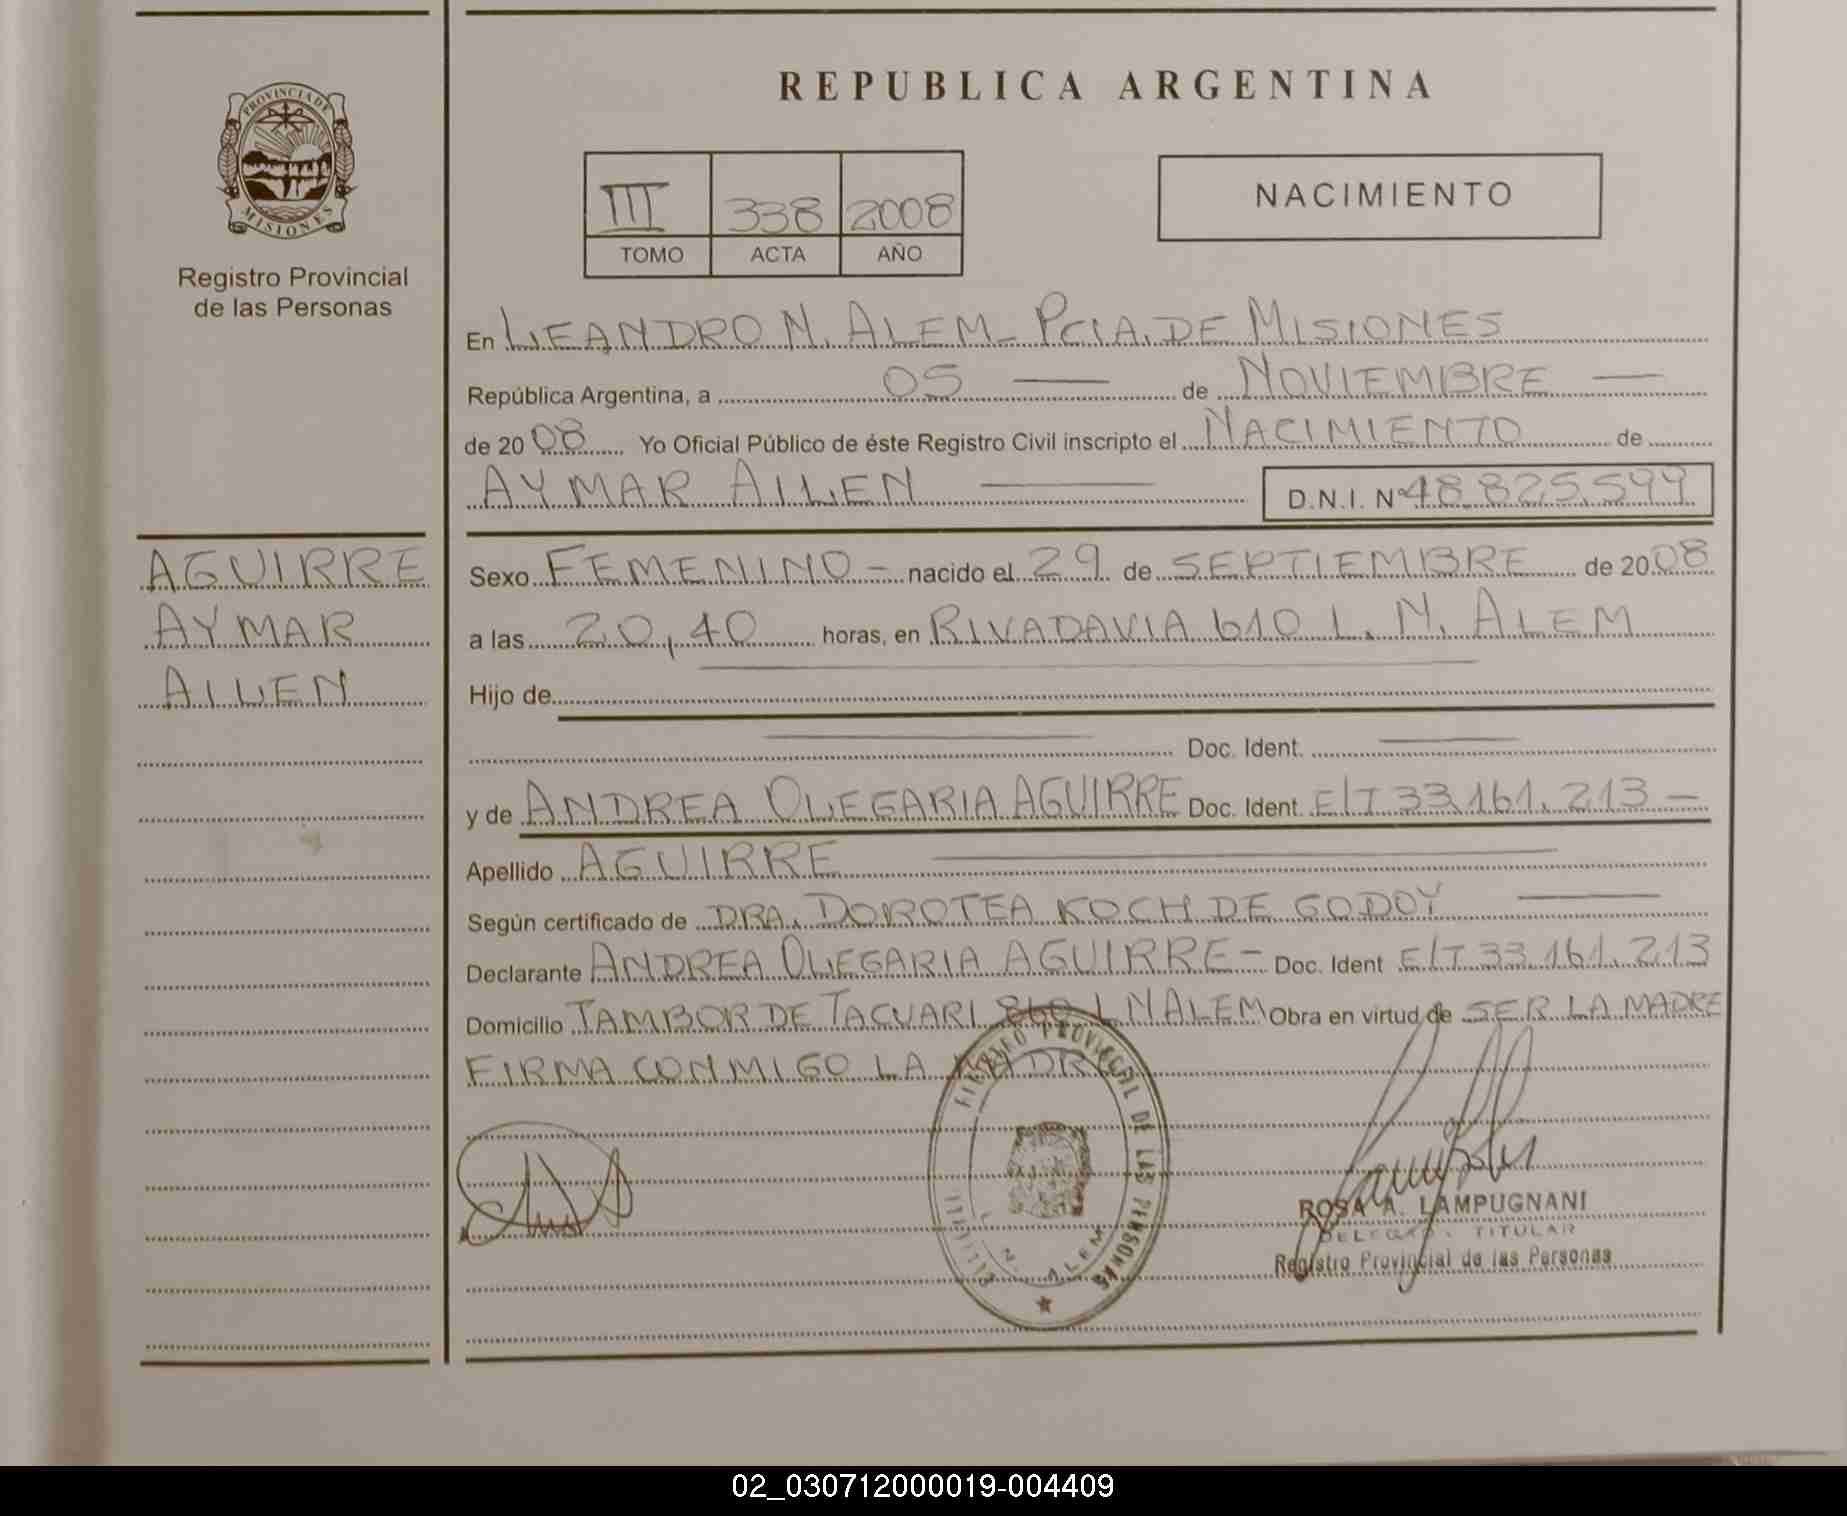 REPUBLICA ARGENTINA
PROVINCIA DE
MISIONES
Registro Provincial
de las Personas
III 338 2008
TOMO ACTA AÑO
NACIMIENTO
En LEANDRO N. ALEM - PCIA. DE MISIONES
República Argentina, a 05 — de NOVIEMBRE —
de 20 08 Yo Oficial Público de éste Registro Civil inscripto el NACIMIENTO de
AYMAR AILEN — D.N.I. Nº 48.825.599
AGUIRRE
AYMAR
AILEN
Sexo FEMENINO - nacido el 29 de SEPTIEMBRE de 20 08
a las 20,40 horas, en RIVADAVIA 610 L. N. ALEM
Hijo de
Doc. Ident.
y de ANDREA OLEGARIA AGUIRRE Doc. Ident. E/T 33.161.213 -
Apellido AGUIRRE
Según certificado de DRA. DOROTEA KOCH DE GODOY
Declarante ANDREA OLEGARIA AGUIRRE - Doc. Ident E/T 33.161.213
Domicilio TAMBOR DE TACUARI 860 L N ALEM Obra en virtud de SER LA MADRE
FIRMA CONMIGO LA MADRE
PROVINCIAL DE LAS PERSONAS
L. N. ALEM
ROSA A. LAMPUGNANI
DELEGADA TITULAR
Registro Provincial de las Personas
02_030712000019-004409